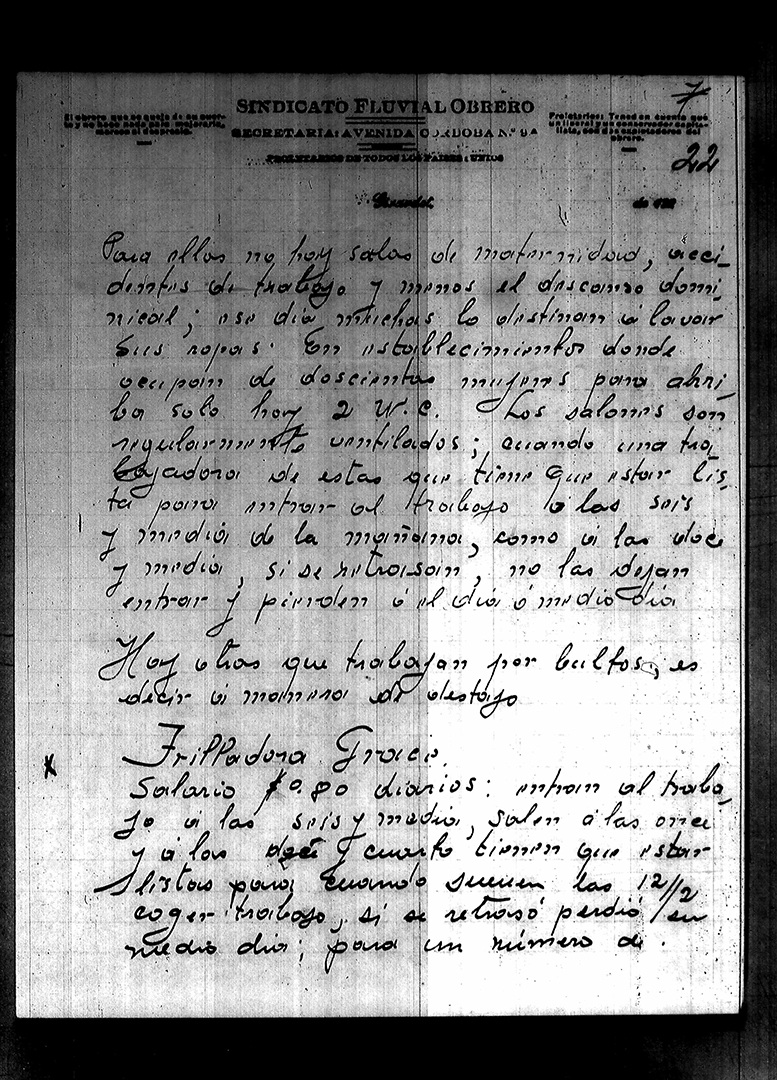 7
SINDICATO FLUVIAL OBRERO
El obrero que se queja de su suer-
te y no hace nada para mejorarla,
merece el desprecio.
Proletarios: Tened en cuenta que
un liberal y un conservador capita-
lista, son dos explotadores del
obrero.
SECRETARIA: AVENIDA CORDOBA N.º 9A
PROLETARIOS DE TODOS LOS PAISES: UNIOS
22
Girardot, de 192
Para ellas no hay salas de maternidad, acci-
dentes de trabajo y menos el descanso domi-
nical; ese día muchas lo destinan á lavar
sus ropas. En establecimientos donde
ocupan de doscientas mujeres para ahrri-
ba solo hay 2 W.C. Los salones son
regularmente ventilados; cuando una tra-
bajadora de estas que tiene que estar lis-
ta para entrar al trabajo á las seis
y media de la mañana, como á las doce
y media, si se retrasan, no las dejan
entrar y pierden ó el día ó medio día
Hay otras que trabajan por bultos, es
decir á manera de destajo
x
Trilladora Grace.
Salario $0.80 diarios: entran al traba-
jo á las seis y media, salen á las once
y á las doce y cuarto tienen que estar
listas para cuando suenen las 12 1/2
coger trabajo, si se retrasó perdió su
medio día; para un número de